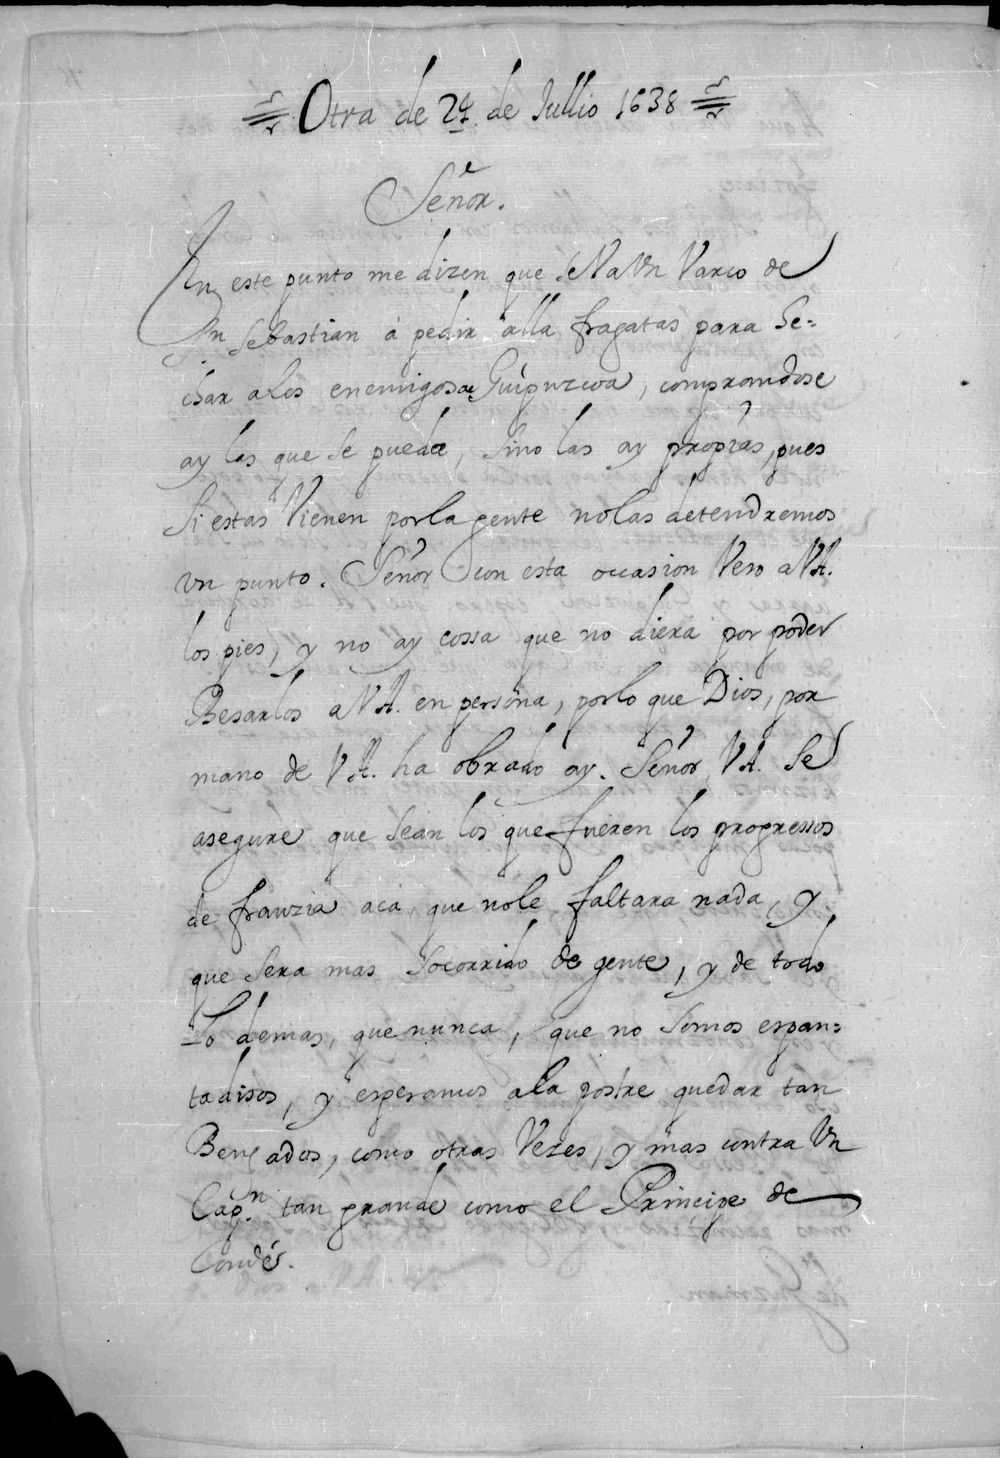 Otra de 24 de Jullio 1638
Señor.
En este punto me dizen que se Va Vn Varco de
Sn Sebastian á pedir alla fragatas para Se=
char a los enemigos de Guipuzcoa, comprandose
ay las que se pueda, sino las ay propias, pues
Si estas Vienen por la gente no las detendremos
vn punto. Señor con esta occasion Veso a VA.
los pies, y no ay cossa que no diera por poder
Besarlos a VA. en persona, por lo que Dios, por
mano de VA. ha obrado ay. Señor VA. Se
asegure que sean los que fueren los progressos
de franzia aca, que no le faltara nada, y
que sera mas socorrido de gente, y de todo
Lo demas, que nunca, que no somos espan=
tadisos, y esperamos a la postre quedar tan
Bengados, como otras Vezes, y mas contra Vn
Capn. tan grande como el Principe de
Condés.